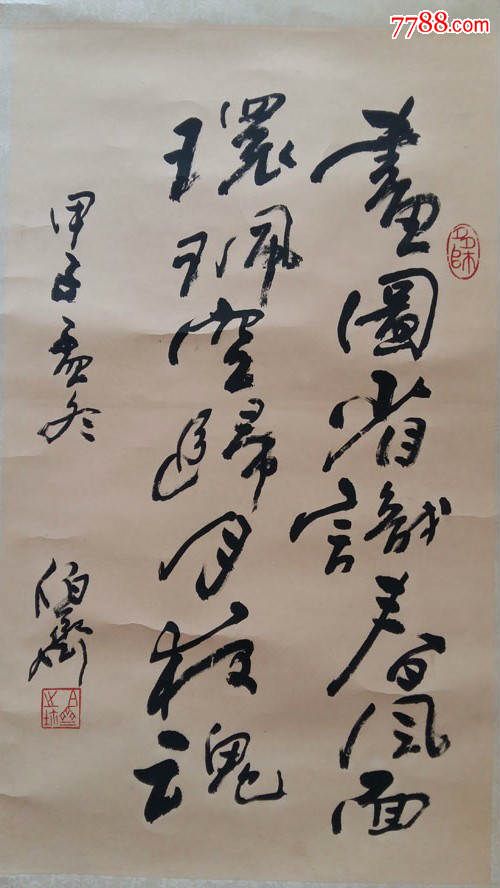 7788.com
畫圖省識春風面
環珮空歸月夜魂
甲子孟冬
伯